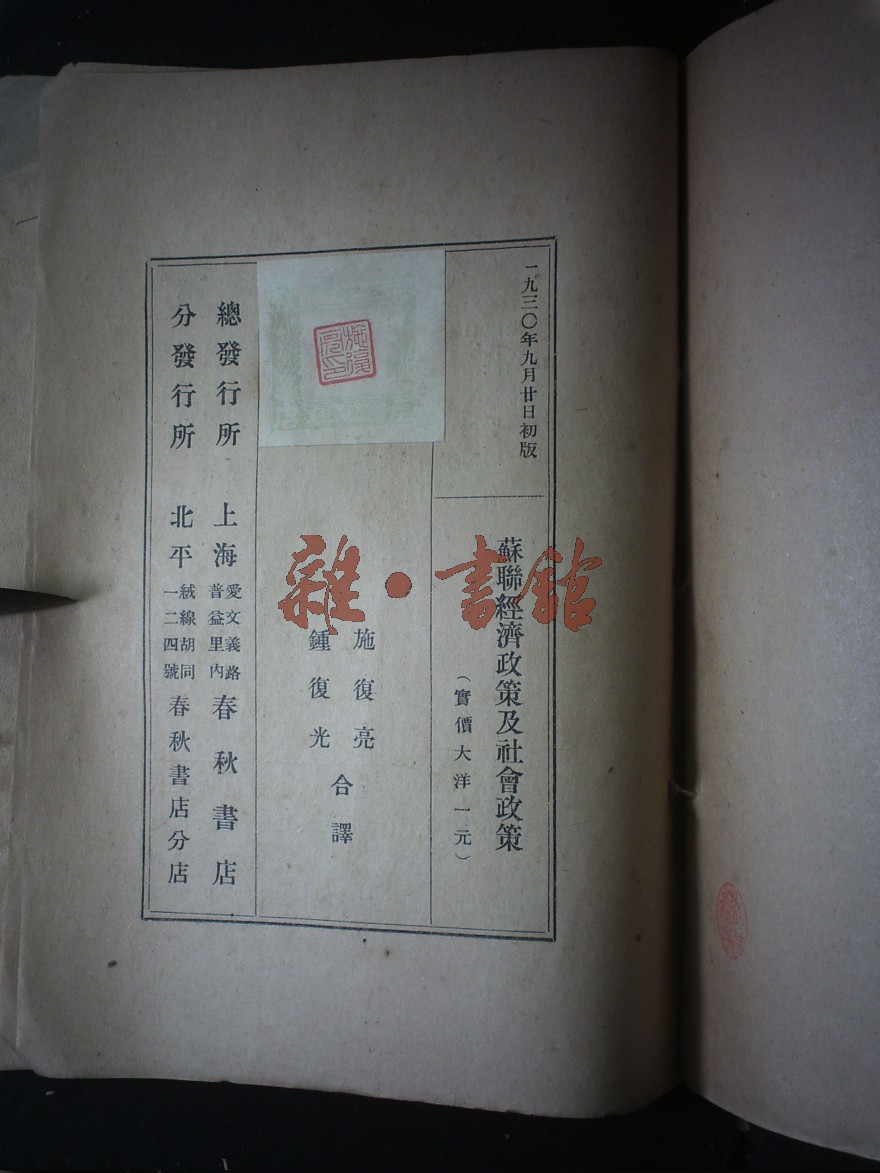 一九三〇年九月廿日初版
蘇聯經濟政策及社會政策
（實價大洋一元）
施復亮印
施復亮
鍾復光
合譯
總發行所 上海 愛文義路
普益里內 春秋書店
分發行所 北平 絨線胡同
一二四號 春秋書店分店
雜·書館